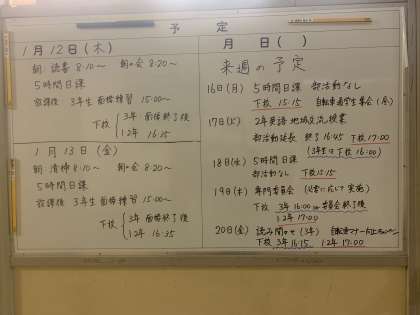 予 定
1月12日(木)
朝 読書 8:10〜 朝の会 8:20〜
5時間日課
放課後 3年生面接練習 15:00〜
下校 3年 面接終了後
1.2年 16:35
1月13日(金)
朝 清掃 8:10〜 朝の会 8:20〜
5時間日課
放課後 3年生面接練習 15:00〜
下校 3年 面接終了後
1.2年 16:35
月 日( )
来週の予定
16日(月) 5時間日課 部活動なし
下校 15:15 自転車通学生集会
17日(火) 2年英語 地域交流授業
部活動延長 終了 16:45 下校 17:00
(3年生は下校 16:00)
18日(水) 5時間日課
部活動なし 下校 15:15
19日(木) 専門委員会 (必要に応じて実施)
下校 3年 16:00 or 委員会終了後
1.2年 17:00
20日(金) 読み聞かせ(3年) 自転車マナー向上キャンペーン
下校 3年 16:15 1.2年 17:00